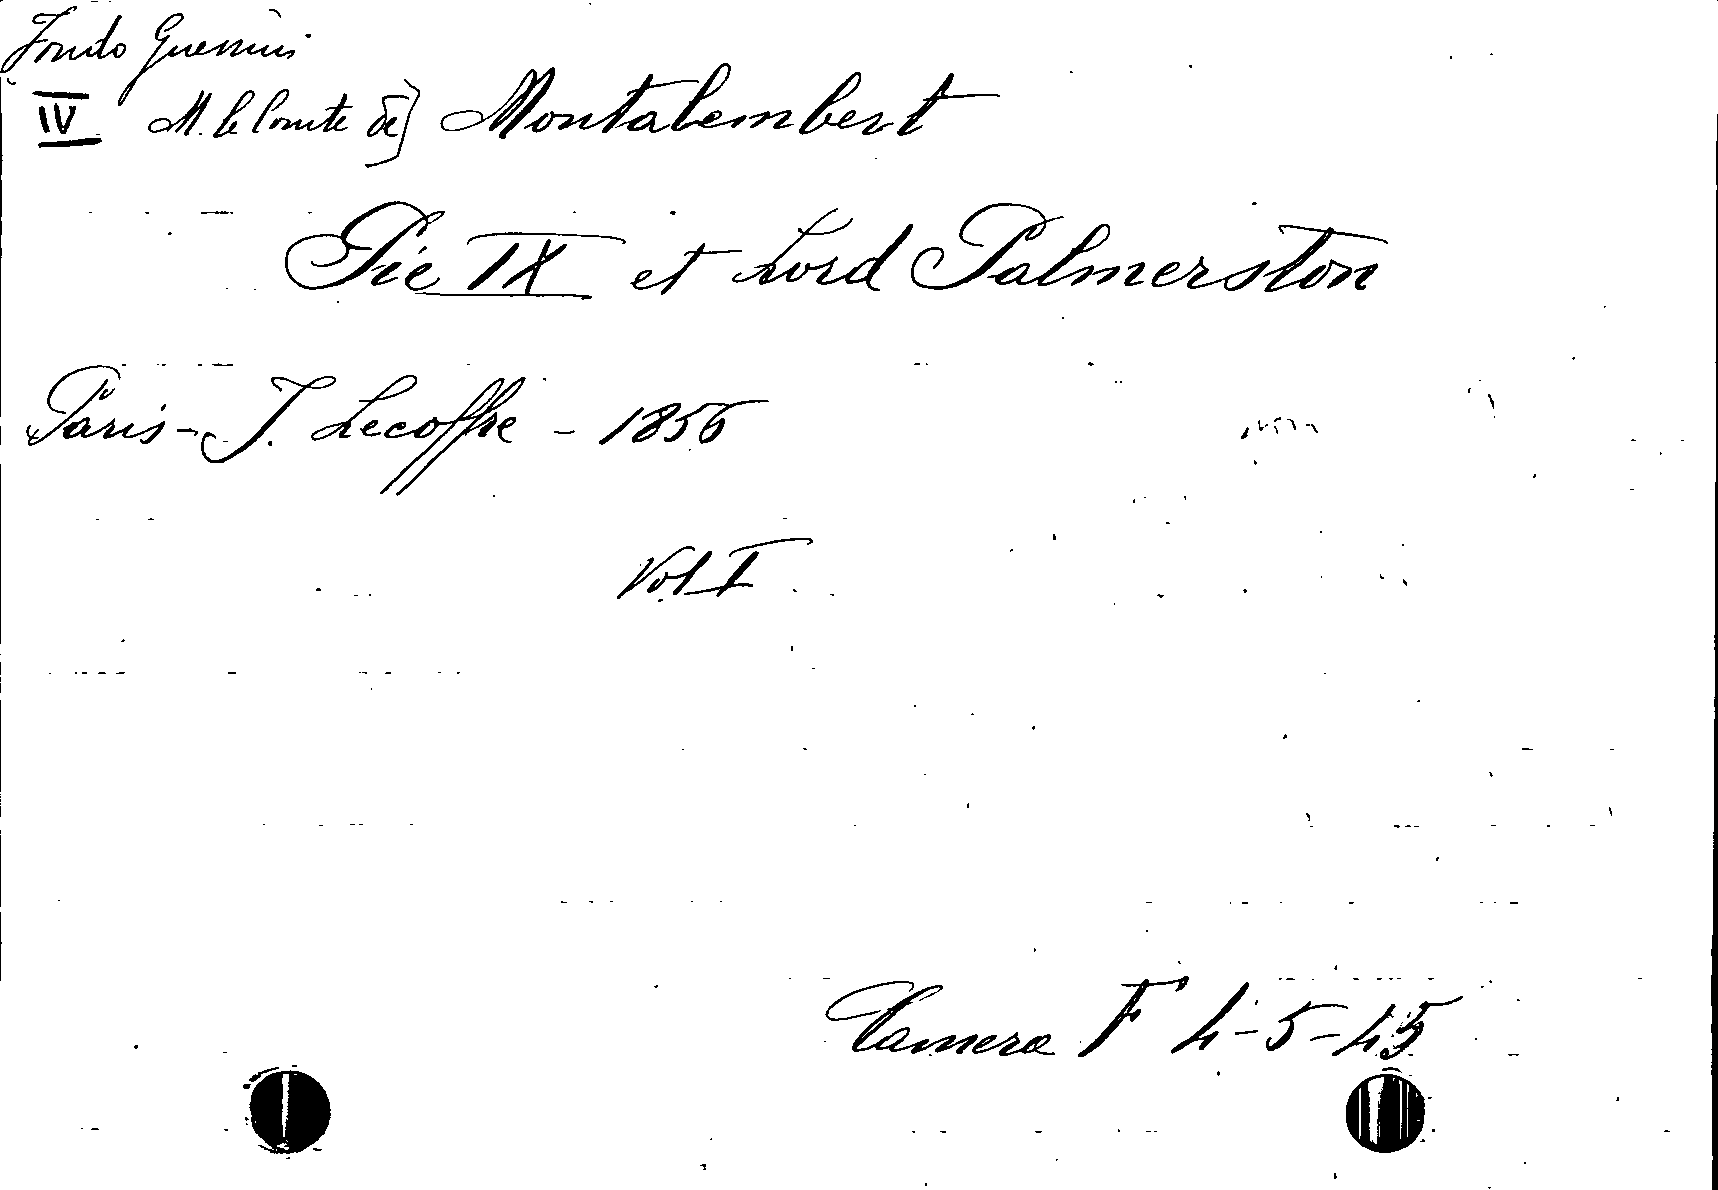 Fondo Guerrini
IV M. le Comte de] Montalembert
Pie IX et Lord Palmerston
Paris - J. Lecoffre - 1856
Vol I
Camera F 4-5-45